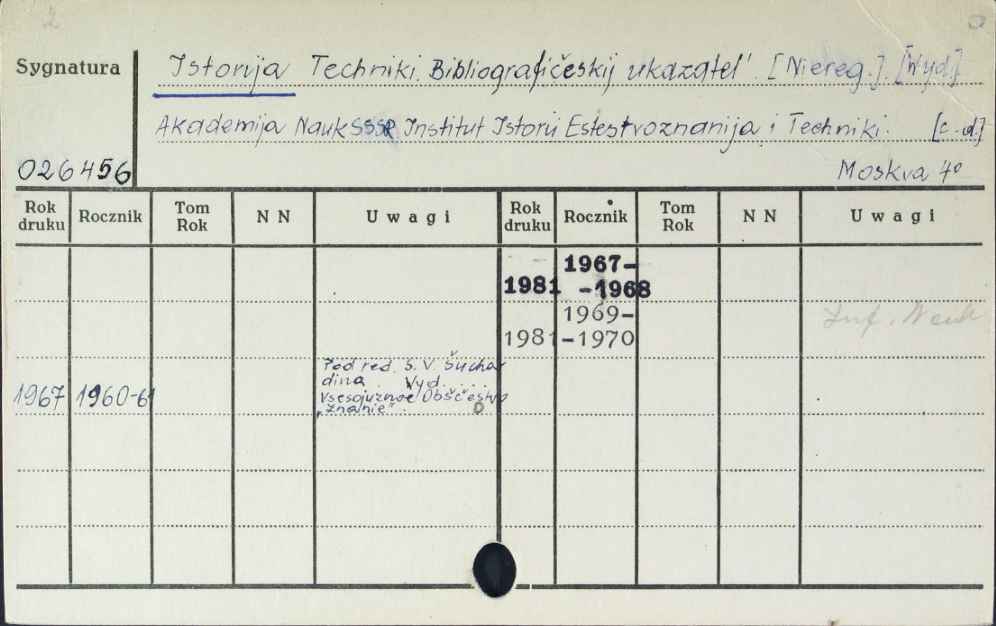 2
Sygnatura
Istorija Techniki. Bibliografičeskij ukazatel'. [Niereg.]. [Wyd.]
Akademija Nauk SSSR Institut Istorii Estestvoznanija i Techniki.
026456
Moskva 4°
Rok druku Rocznik Tom Rok N N Uwagi Rok druku Rocznik Tom Rok N N Uwagi
1967-
1981 -1968
1969-
1981-1970
Inf. Nauk
Pod red. S. V. Šuchar
dina. Wyd. ....
1967 1960-61 Vsesojuznoe Obščestvo
"Znanie".